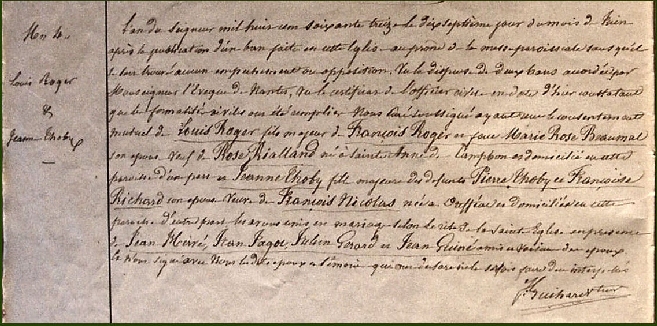 Mn 4.
Louis Roger
&
Jeanne Thoby
L'an du Seigneur mil huit cent soixante treize le dix septième jour du mois de Juin
après la publication d'un ban fait en cette Eglise au prône de la messe paroissiale sans qu'il
se soit trouvé aucun empêchement ou opposition. Vu la dispense de deux bans accordée par
Monseigneur l'Evêque de Nantes, Vu le certificat de l'officier civil en date d'hier constatant
que les formalités civiles ont été remplies Nous Curé soussigné ayant reçu le consentement
mutuel de Louis Roger fils majeur de François Roger et feue Marie Rose Beaumal
son épouse veuf de Rose Rialland né à Sainte Anne de Campbon et domicilié en cette
paroisse d'une part et Jeanne Thoby fille majeure des defunts Pierre Thoby et Françoise
Richard son épouse Veuve de François Nicolas née à Couffé et domiciliée en cette
paroisse d'autre part les avons unis en mariage selon le rit de la Sainte Eglise en présence
de Jean Hervé, Jean Pagot Julien Gérard et Jean amis et voisins des époux
le Nous signé avec Nous les dits époux témoins qui ont déclaré ne le savoir faire de ce interpellés
J. Guihard